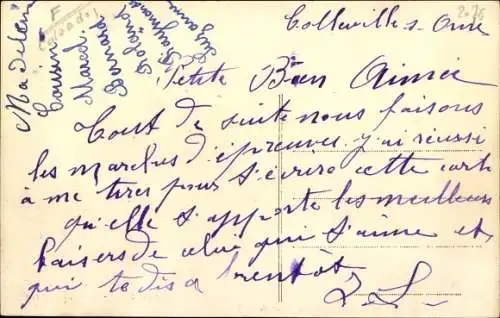 Colleville s. Orne
Petite Bien Aimée
Tout de suite nous faisons
les marches d'épreuves j'ai réussi
à me tirer pour t'écrire cette carte
qu'elle t'apporte les meilleurs
baisers de celui qui t'aime et
qui te dis a bientôt
Madeleine
Cousine
Marcel
Bernard
Roland
Raymond
Suzanne